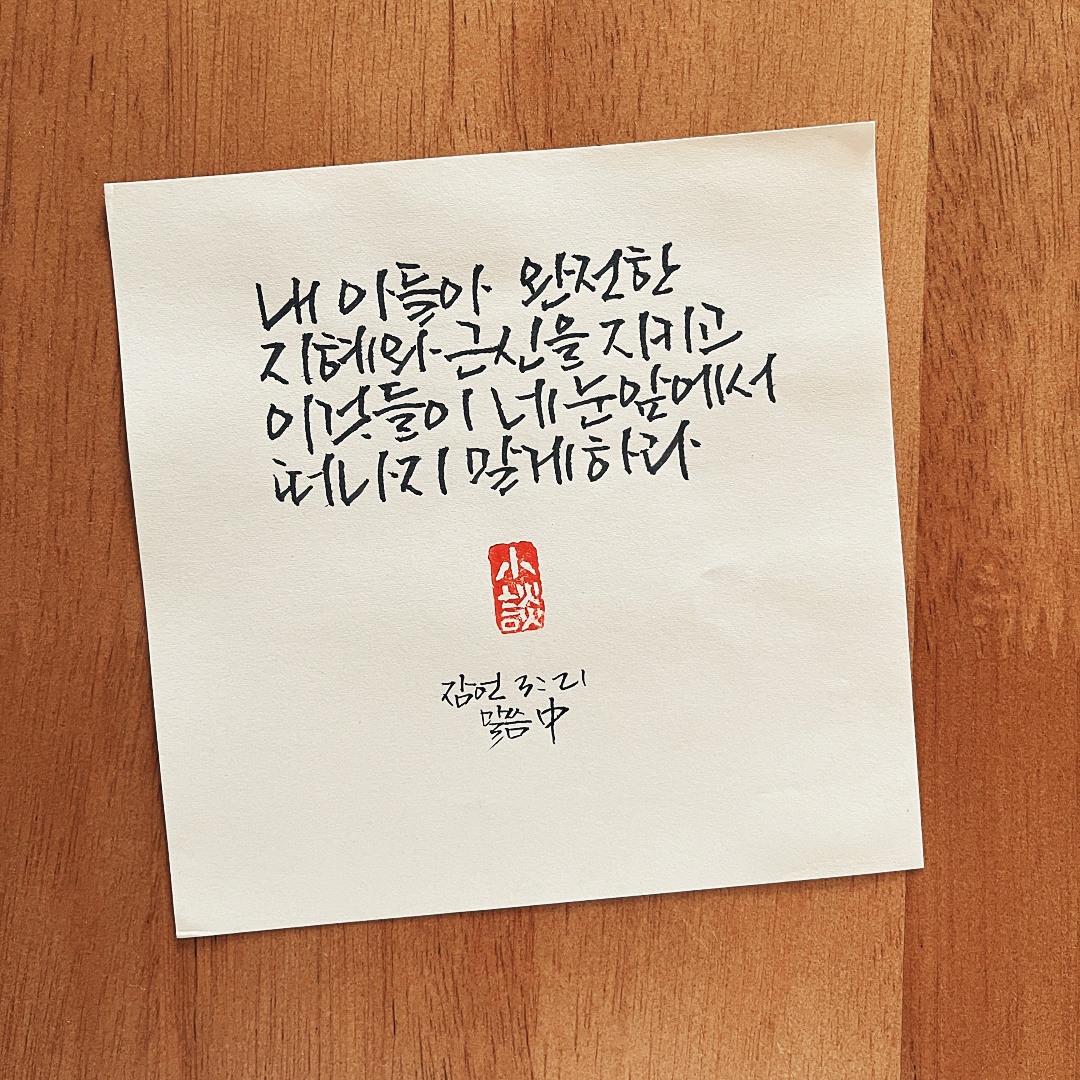 내 아들아 완전한
지혜와 근신을 지키고
이것들이 네 눈앞에서
떠나지 말게 하라
小談
잠언 3:21
말씀 中